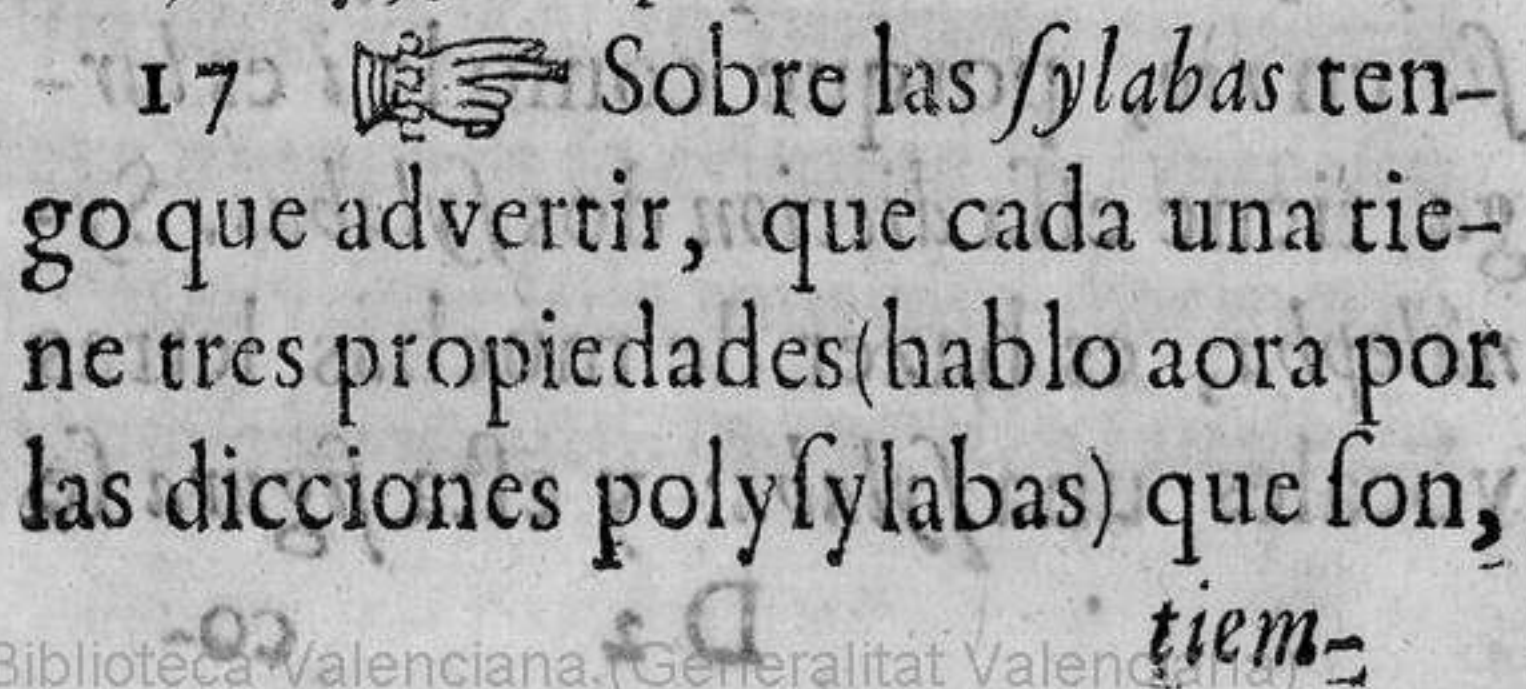 17 ☞ Sobre las ſylabas ten-
go que advertir, que cada una tie-
ne tres propiedades (hablo aora por
las dicciones polyſylabas) que ſon,
tiem-
Biblioteca Valenciana (Generalitat Valenciana)